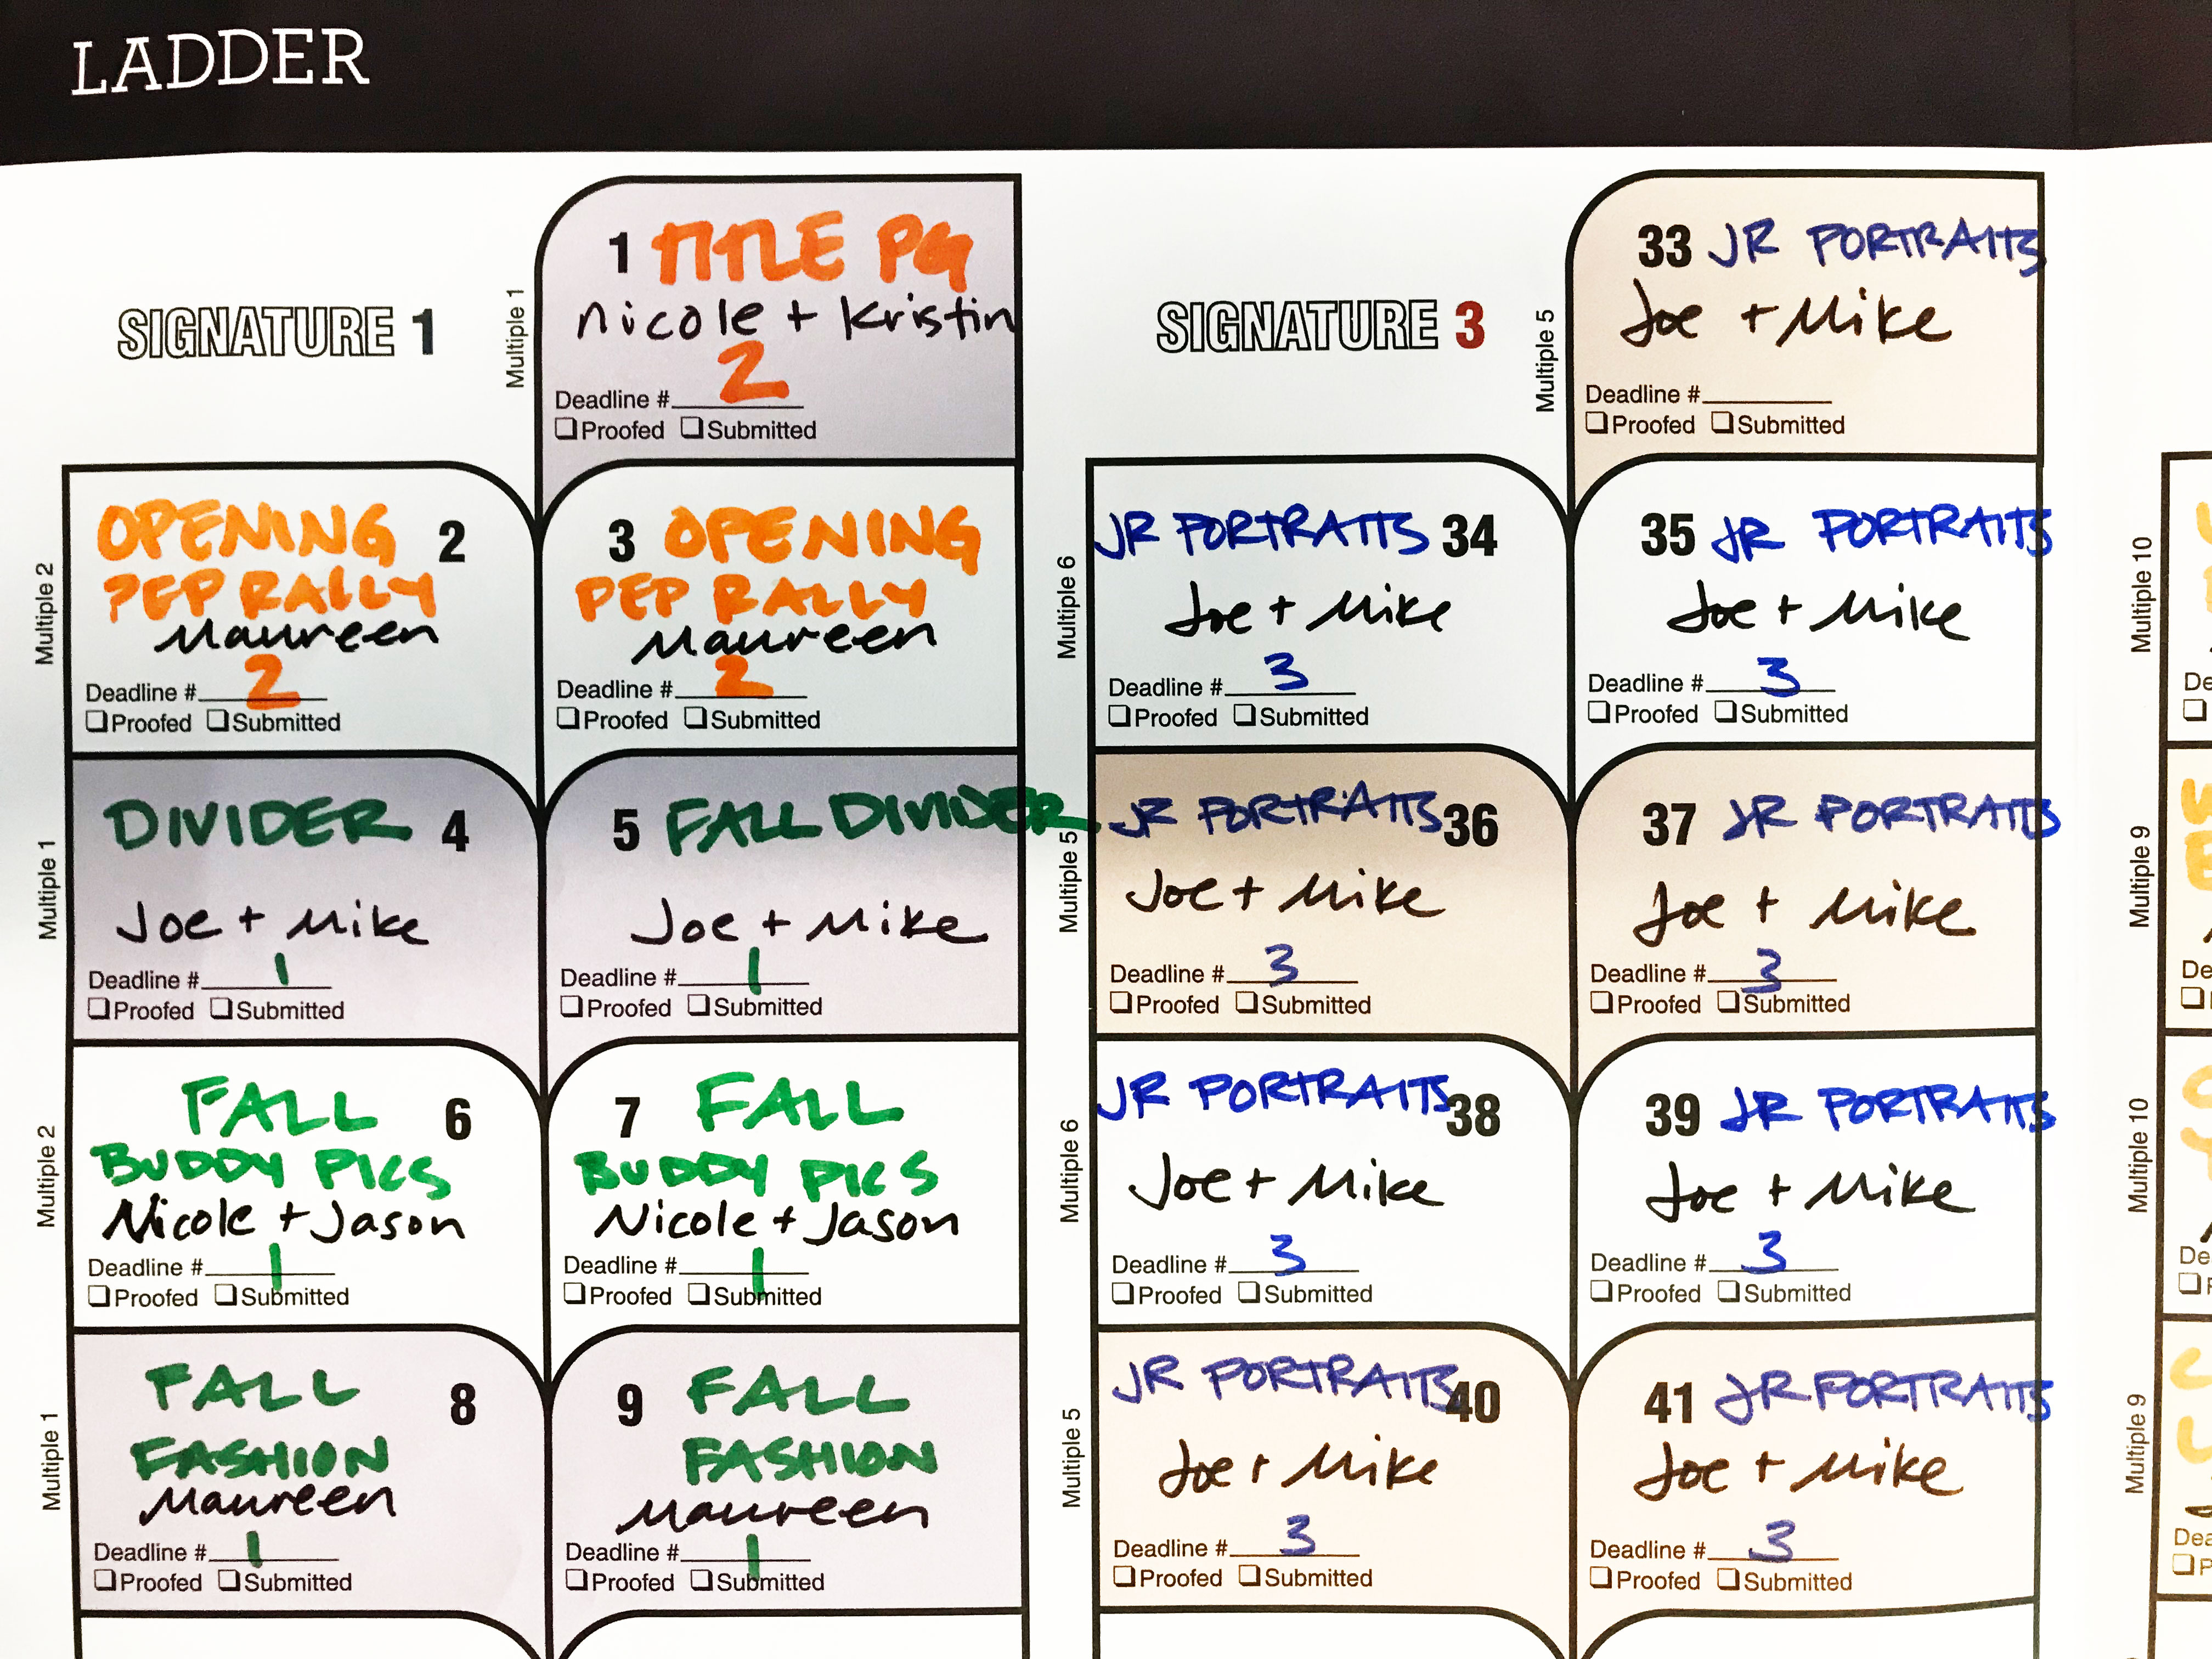 LADDER
SIGNATURE 1
Multiple 1
1 TITLE PG
Nicole + Kristin
Deadline # 2
Proofed Submitted
Multiple 2
OPENING 2
PEP RALLY
Maureen
Deadline # 2
Proofed Submitted
3 OPENING
PEP RALLY
Maureen
Deadline # 2
Proofed Submitted
Multiple 1
DIVIDER 4
Joe + Mike
Deadline # 1
Proofed Submitted
5 FALL DIVIDER
Joe + Mike
Deadline # 1
Proofed Submitted
Multiple 2
FALL 6
BUDDY PICS
Nicole + Jason
Deadline # 1
Proofed Submitted
7 FALL
BUDDY PICS
Nicole + Jason
Deadline # 1
Proofed Submitted
Multiple 1
FALL 8
FASHION
Maureen
Deadline # 1
Proofed Submitted
9 FALL
FASHION
Maureen
Deadline # 1
Proofed Submitted
SIGNATURE 3
Multiple 5
33 JR PORTRAITS
Joe + Mike
Deadline #
Proofed Submitted
Multiple 6
JR PORTRAITS 34
Joe + Mike
Deadline # 3
Proofed Submitted
35 JR PORTRAITS
Joe + Mike
Deadline # 3
Proofed Submitted
Multiple 5
JR PORTRAITS 36
Joe + Mike
Deadline # 3
Proofed Submitted
37 JR PORTRAITS
Joe + Mike
Deadline # 3
Proofed Submitted
Multiple 6
JR PORTRAITS 38
Joe + Mike
Deadline # 3
Proofed Submitted
39 JR PORTRAITS
Joe + Mike
Deadline # 3
Proofed Submitted
Multiple 5
JR PORTRAITS 40
Joe + Mike
Deadline # 3
Proofed Submitted
41 JR PORTRAITS
Joe + Mike
Deadline # 3
Proofed Submitted
Multiple 10
Multiple 9
Multiple 10
Multiple 9